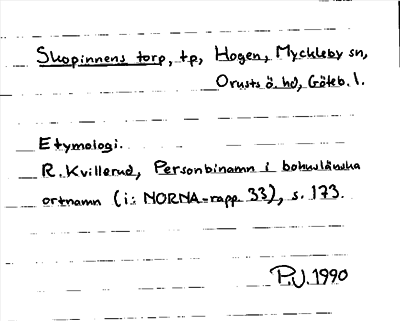 Skopinnens torp, tp, Hogen, Myckleby sn,
Orusts ö. hd, Göteb. l.
Etymologi.
R. Kvillerud, Personbinamn i bohuslänska
ortnamn (i: NORNA-rapp. 33), s. 173.
P.U. 1990